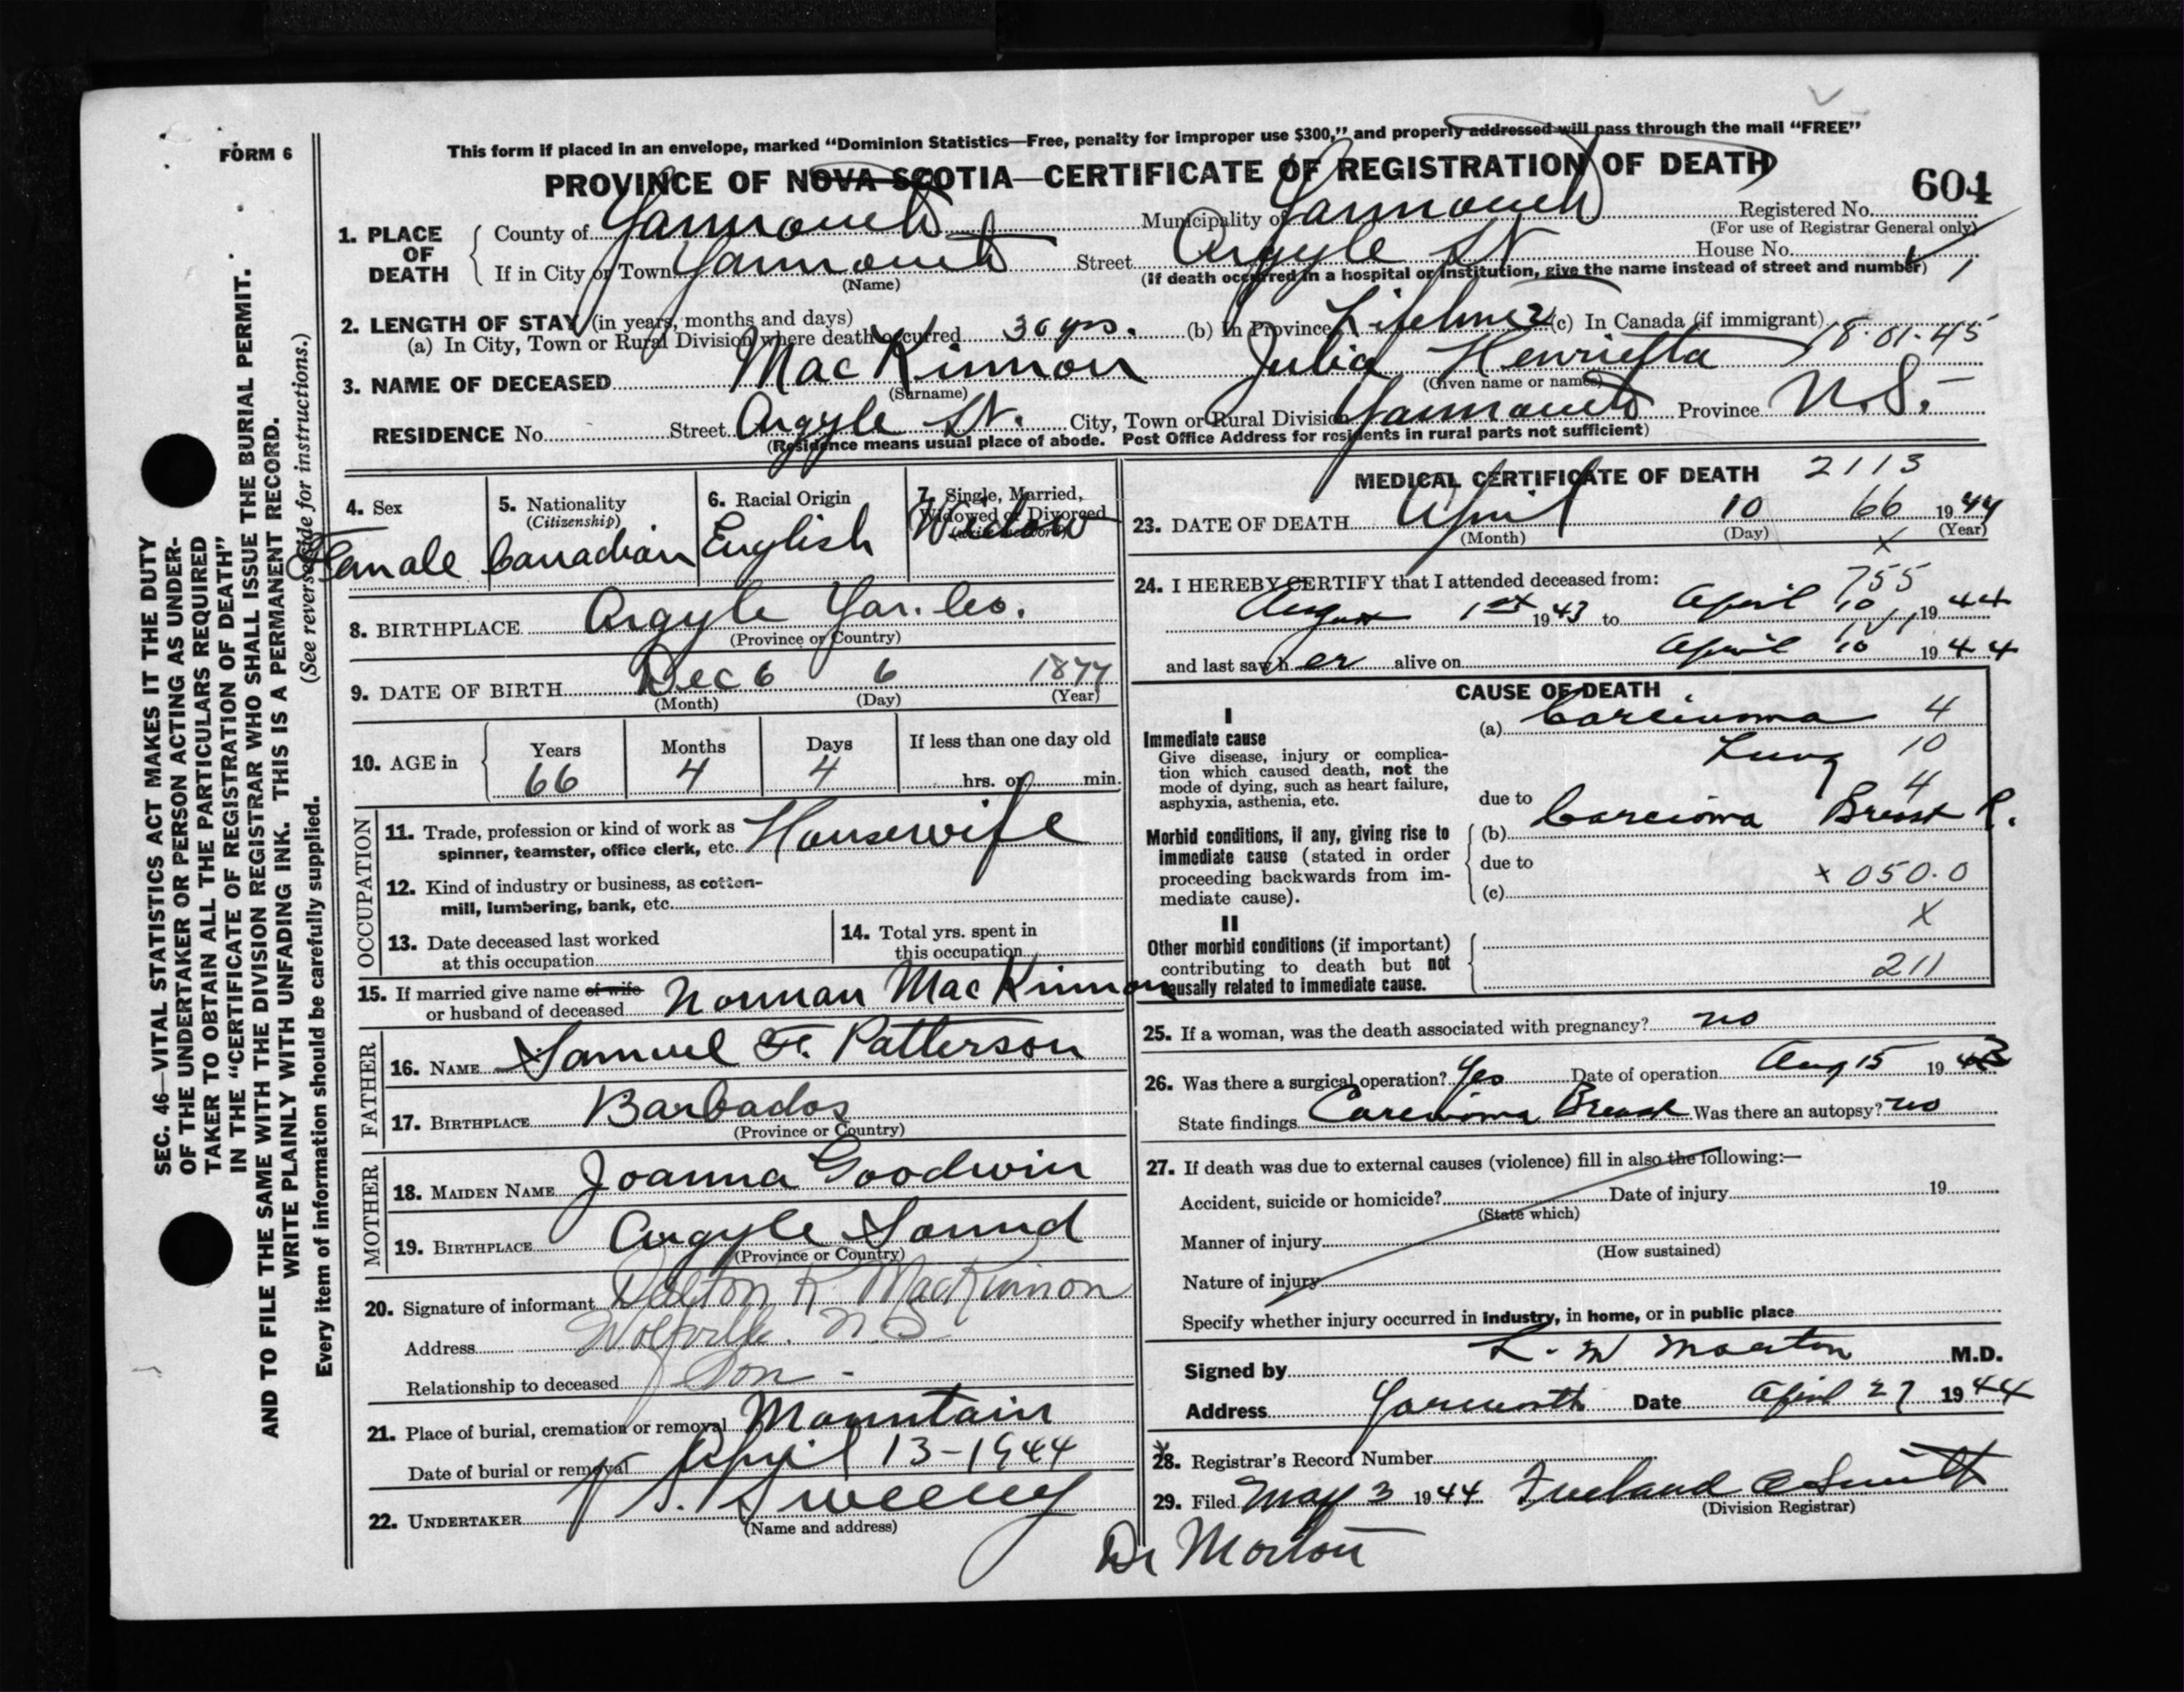 FORM 6
This form if placed in an envelope, marked “Dominion Statistics—Free, penalty for improper use $300,” and properly addressed will pass through the mail “FREE”
PROVINCE OF NOVA SCOTIA—CERTIFICATE OF REGISTRATION OF DEATH
604
1. PLACE OF DEATH
County of Yarmouth Municipality of Yarmouth Registered No.
(For use of Registrar General only)
If in City or Town Yarmouth Street Argyle St House No.
(Name) (If death occurred in a hospital or institution, give the name instead of street and number) 1
2. LENGTH OF STAY (in years, months and days)
(a) In City, Town or Rural Division where death occurred 30 yrs. (b) In Province Lifetime (c) In Canada (if immigrant)
18.01.45
3. NAME OF DECEASED MacKinnon Julia Henrietta
(Surname) (Given name or names)
RESIDENCE No. Street Argyle St. City, Town or Rural Division Yarmouth Province N.S.
(Residence means usual place of abode. Post Office Address for residents in rural parts not sufficient)
4. Sex
Female
5. Nationality
(Citizenship)
Canadian
6. Racial Origin
English
7. Single, Married,
Widowed or Divorced
Widow
8. BIRTHPLACE Argyle Yar. Co.
(Province or Country)
9. DATE OF BIRTH Dec 6 6 1877
(Month) (Day) (Year)
10. AGE in
Years Months Days If less than one day old
66 4 4 hrs. or min.
OCCUPATION
11. Trade, profession or kind of work as
spinner, teamster, office clerk, etc. Housewife
12. Kind of industry or business, as cotton-
mill, lumbering, bank, etc.
13. Date deceased last worked
at this occupation
14. Total yrs. spent in
this occupation
15. If married give name of wife
or husband of deceased Norman MacKinnon
FATHER
16. NAME Samuel F. Patterson
17. BIRTHPLACE Barbados
(Province or Country)
MOTHER
18. MAIDEN NAME Joanna Goodwin
19. BIRTHPLACE Argyle Sound
(Province or Country)
20. Signature of informant Dalton K. MacKinnon
Address Wolfville. N.S
Relationship to deceased Son -
21. Place of burial, cremation or removal Mountain
Date of burial or removal April 13-1944
22. UNDERTAKER V. S. Sweeny
(Name and address)
MEDICAL CERTIFICATE OF DEATH 2113
23. DATE OF DEATH April 10 66 1944
(Month) (Day) (Year)
x
24. I HEREBY CERTIFY that I attended deceased from: 755
August 1st 1943 to April 10 1944
and last saw her alive on April 10 1944
CAUSE OF DEATH
I
Immediate cause
Give disease, injury or complica-
tion which caused death, not the
mode of dying, such as heart failure,
asphyxia, asthenia, etc.
(a) Carcinoma 4
Lung 10
4
due to
Morbid conditions, if any, giving rise to
immediate cause (stated in order
proceeding backwards from im-
mediate cause).
(b) Carcioma Breast R.
due to
x 050.0
(c)
x
II
Other morbid conditions (if important)
contributing to death but not
causally related to immediate cause.
211
25. If a woman, was the death associated with pregnancy? no
26. Was there a surgical operation? Yes Date of operation Aug 15 1943
State findings Carcinoma Breast Was there an autopsy? no
27. If death was due to external causes (violence) fill in also the following:—
Accident, suicide or homicide? Date of injury 19
(State which)
Manner of injury
(How sustained)
Nature of injury
Specify whether injury occurred in industry, in home, or in public place
Signed by L. M Morton M.D.
Address Yarmouth Date April 27 1944
28. Registrar's Record Number
29. Filed May 3 1944
(Division Registrar)
Dr Morton
SEC. 46—VITAL STATISTICS ACT MAKES IT THE DUTY
OF THE UNDERTAKER OR PERSON ACTING AS UNDER-
TAKER TO OBTAIN ALL THE PARTICULARS REQUIRED
IN THE “CERTIFICATE OF REGISTRATION OF DEATH”
AND TO FILE THE SAME WITH THE DIVISION REGISTRAR WHO SHALL ISSUE THE BURIAL PERMIT.
WRITE PLAINLY WITH UNFADING INK. THIS IS A PERMANENT RECORD.
(See reverse side for instructions.)
Every item of information should be carefully supplied.